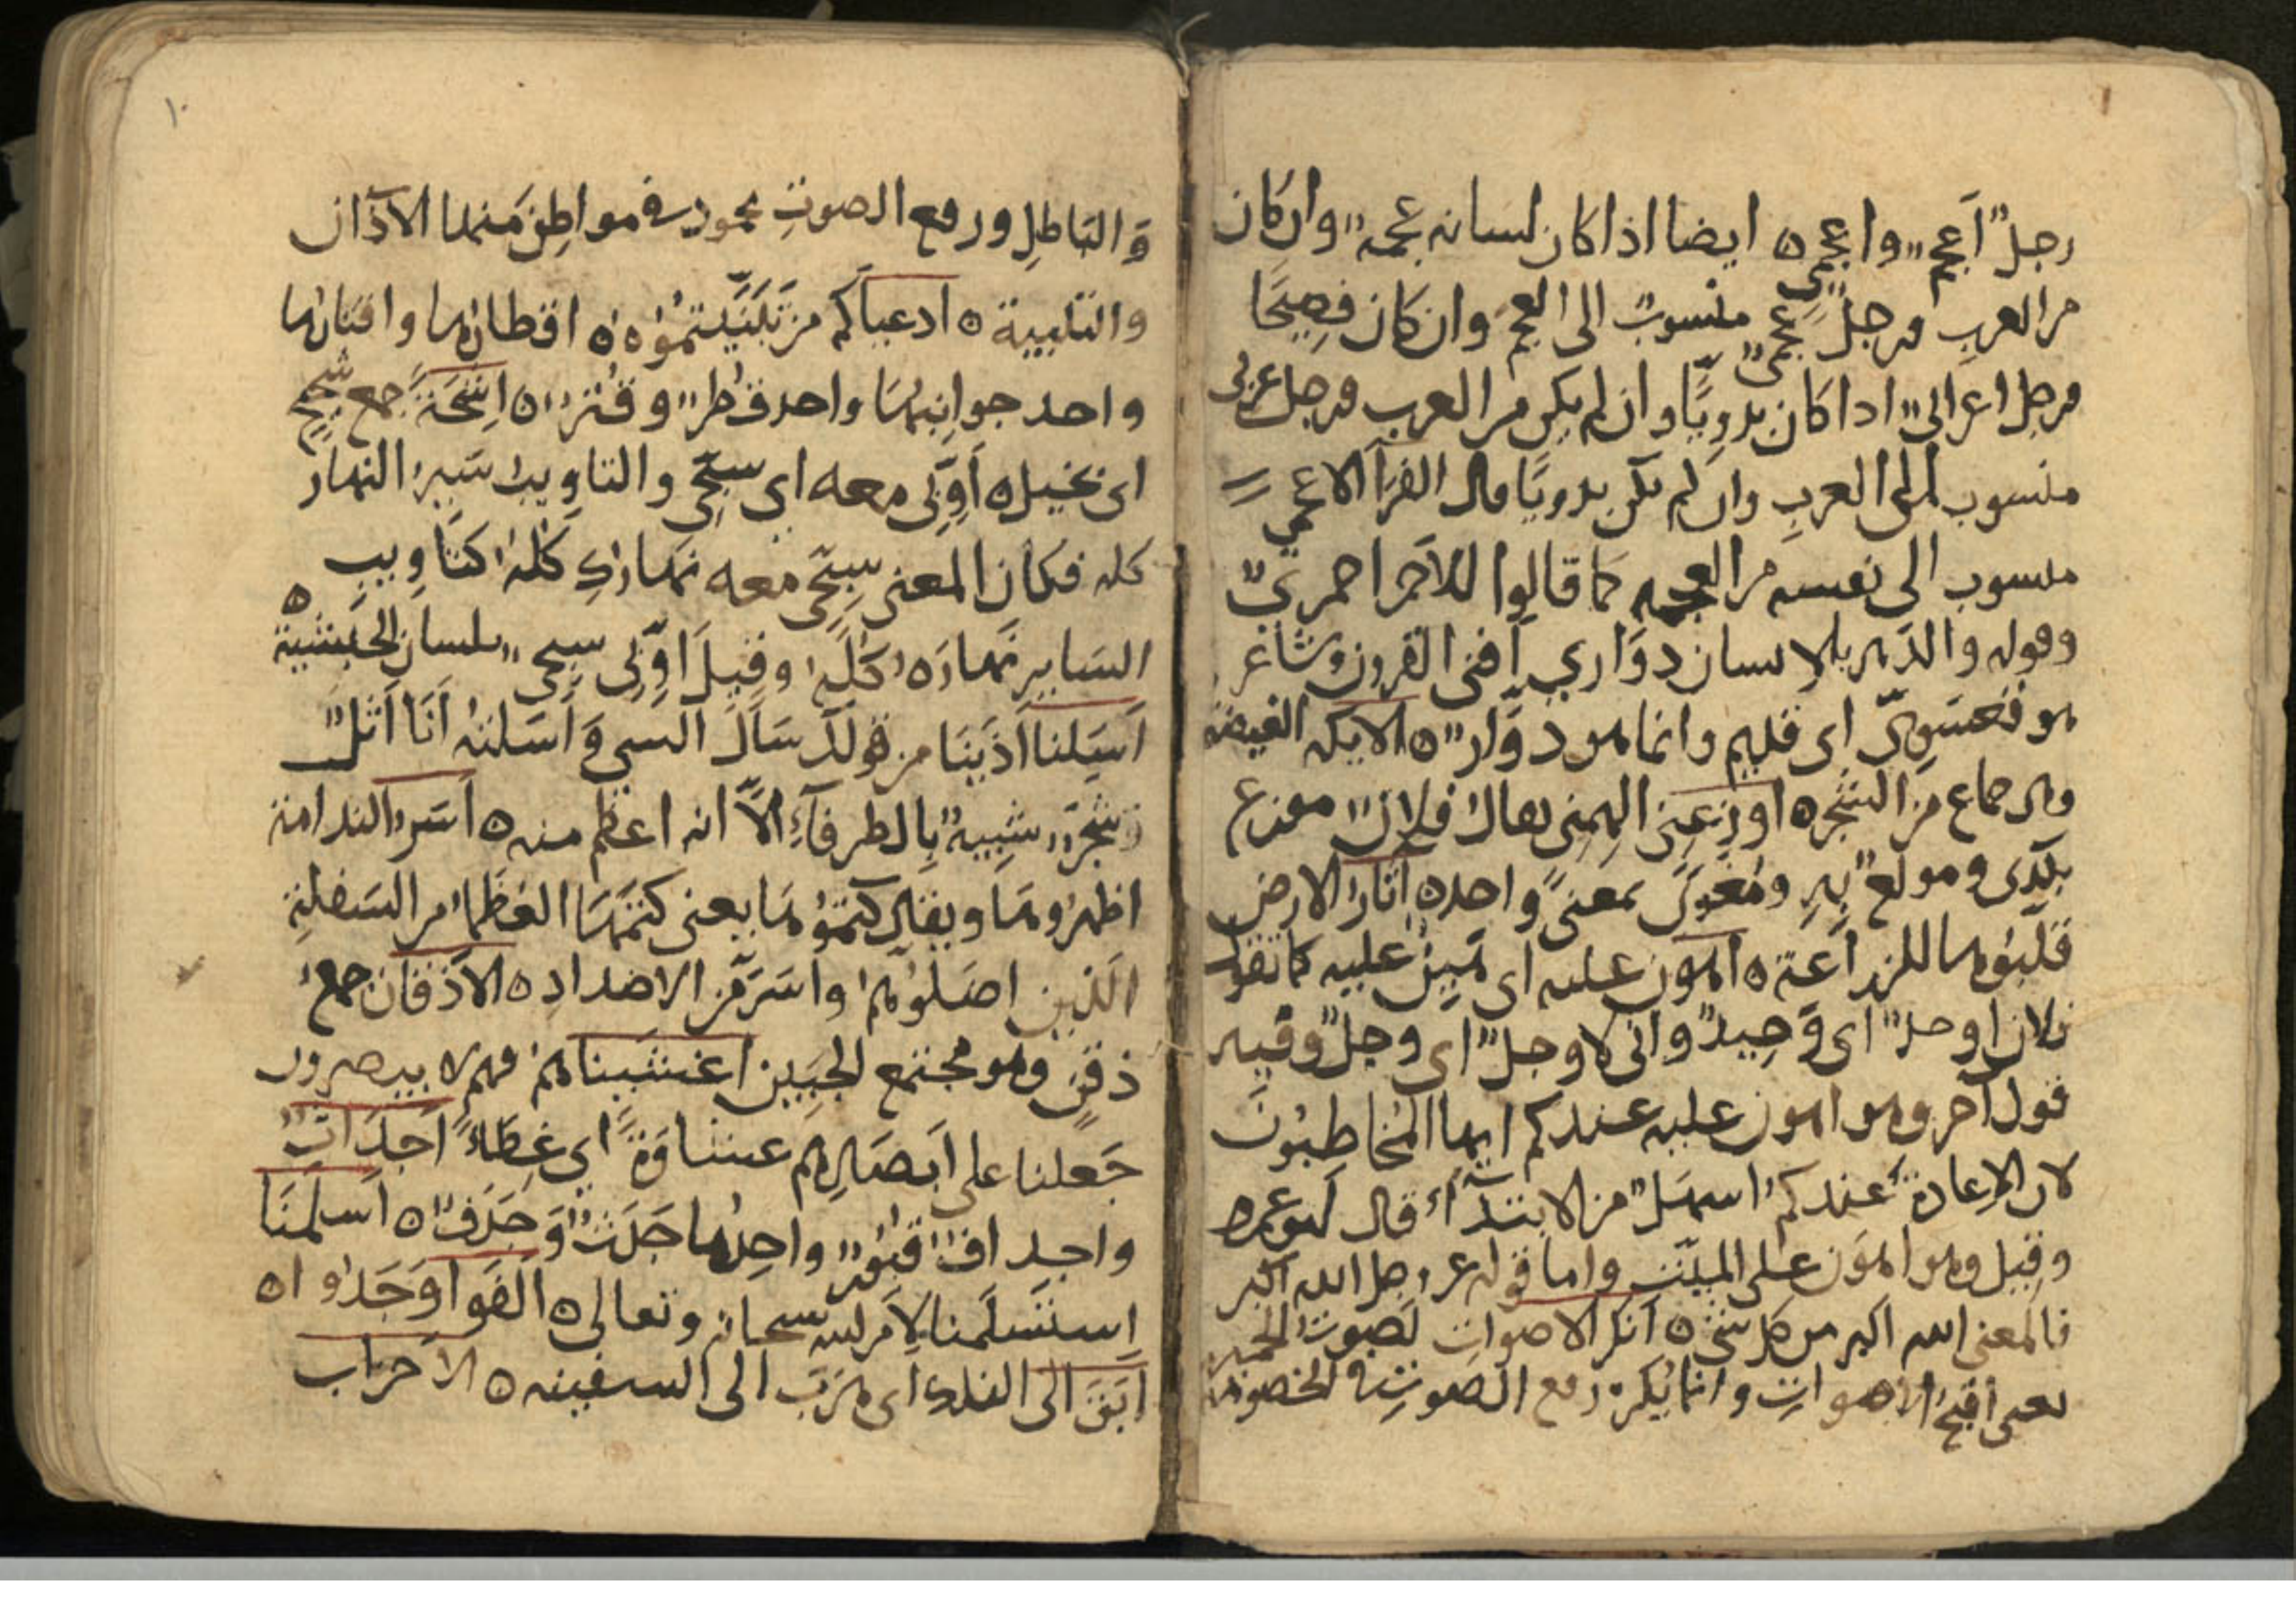 رجلٌ اَعجم وا عجمي ٥ ايضا اذا كان لسانه عجمة وان كان
من العرب ورجل عجمي منسوب الى العجم وان كان فصيحًا
ورجل اعرابي اذا كان بدويًّا وان لم يكن من العرب ورجل عربي
منسوب الى العرب وان لم يكن بدويًا قال الفرآ الاعجمي
منسوب الى نفسه من العجمه كما قالوا للاحمر احمريّ
وقوله والدهر بالانسان دوّاري افنى القرون
هو قعسريّ اى قديم وانما هو دوّار ٥ الايكه الغيضه
وهى جماع من الشجر ٥ اوزعني الهمني يقال فلان موزع
بكذى ومولع به ومغرى بمعنىً واحد ٥ اثاروا الارض
قلبوها للزراعة ٥ اهون عليه اى هين عليه كما تقول
فلان اوحد اى وحيد وانى لاوجل اى وجل وفيه
قول آخر وهو اهون عليه عندكم ايها المخاطبون
لان الاعادة عندكم اسهل من الابتدآء قال ابو عمره
وقيل وهو اهون على الميّت واما قوله عز وجل الله اكبر
فالمعنى الله اكبر من كل شى ٥ انكر الاصوات لصوت الحمير
يعنى اقبح الاصوات وانما يكره رفع الصوت فى الخصومة
١٠
وَ الباطل ورفع الصوت محمود فى مواطن منها الاذان
والتلبية ٥ ادعياكم من تبنّيتموه ٥ اقطارها واقتارها
واحد جوانبها واحد قطر وقتر ٥ اشحة جمع شحيح
اى بخيل ٥ اَوِّبى معه اى سبّحي والتاويب سير النهار
كله فكان المعنى سبّحي معه نهارك كله كتاويب
الساير نهاره كله وقيل اوّبى سبحى بلسان الحبشية ٥
اَسَلنا اذبنا من قولك سال الشى وَ اسلته انا اثل
شجر شبيه بالطرفآء الاّ انه اعظم منه ٥ اسروا الندامة
اظهروها ويقال كتموها يعنى كتمها العظما من السفلة
الذين اضلوهم واسر من الاضداد ٥ الاذقان جمع
ذقن وهو مجتمع اللحيين اغشيناهم فهم لا يبصرون
جعلنا على ابصارهم غشاوة اى غطاء اجداث
واجداف قبور واحدها جدث وَ جدف ٥ اسلمنا
استسلمنا لامر الله سبحانه وتعالى ٥ الفوا وَجَدُوا ٥
ابق الى الفلك اى هرب الى السفينه ٥ الاحزاب